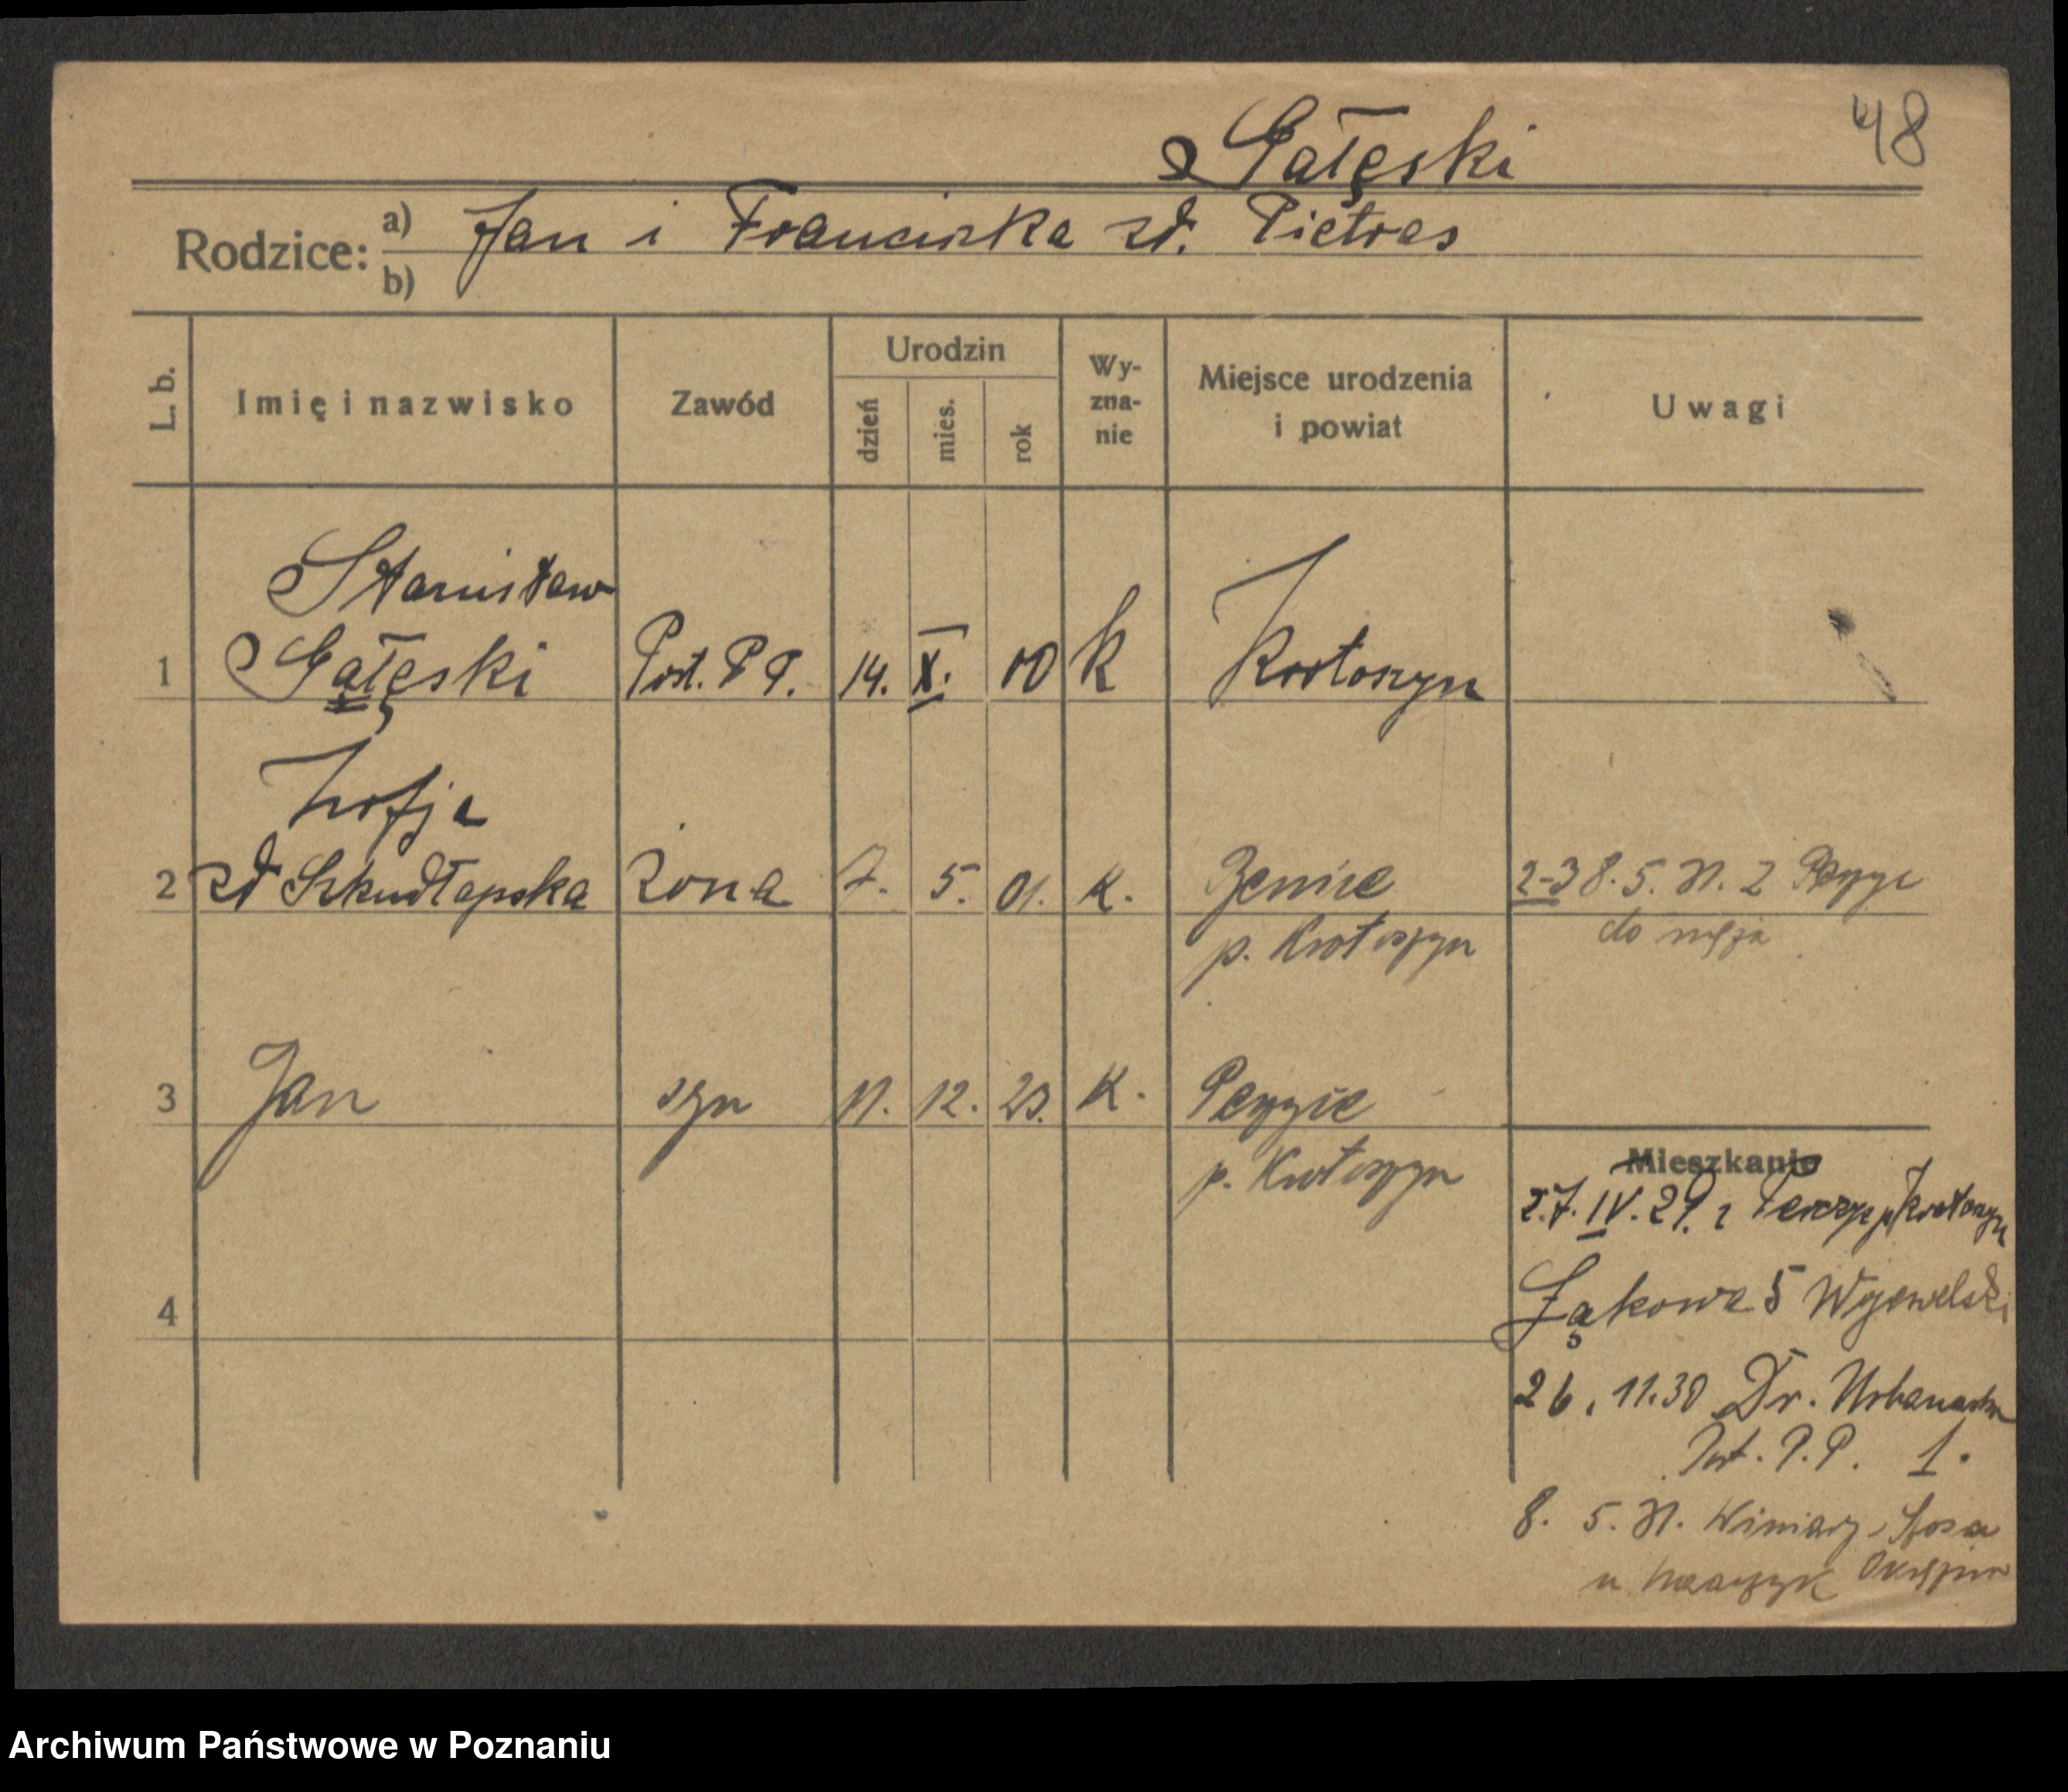 48
Gałęski
Rodzice: a) Jan i Franciszka zd. Pietras
b)
L. b.
Imię i nazwisko
Zawód
Urodzin
dzień
mies.
rok
Wy-
zna-
nie
Miejsce urodzenia
i powiat
Uwagi
Stanisław
1 Gałęski Post. P P. 14. X. 00 k Krotoszyn
Zofja
2 zd Szkudłapska Żona 7. 5. 01. K. Benice 2-3 8. 5. 31. z
p. Krotoszyn do męża
3 Jan syn 11. 12. 23. K.
p. Krotoszyn
Mieszkanie
27. IV. 29. z p Krotoszyn
Łąkowa 5
26. 11.30 Dr.
Post. P. P. 1.
8. 5. 31. Winiary
u
4
Archiwum Państwowe w Poznaniu